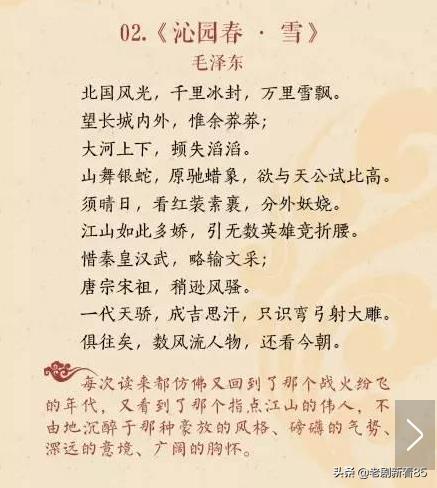 02.《沁园春·雪》
毛泽东
北国风光，千里冰封，万里雪飘。
望长城内外，惟余莽莽；
大河上下，顿失滔滔。
山舞银蛇，原驰蜡象，欲与天公试比高。
须晴日，看红装素裹，分外妖娆。
江山如此多娇，引无数英雄竞折腰。
惜秦皇汉武，略输文采；
唐宗宋祖，稍逊风骚。
一代天骄，成吉思汗，只识弯弓射大雕。
俱往矣，数风流人物，还看今朝。
每次读来都仿佛又回到了那个战火纷飞
的年代，又看到了那个指点江山的伟人，不
由地沉醉于那种豪放的风格、磅礴的气势、
深远的意境、广阔的胸怀。
头条 @老剧新看85